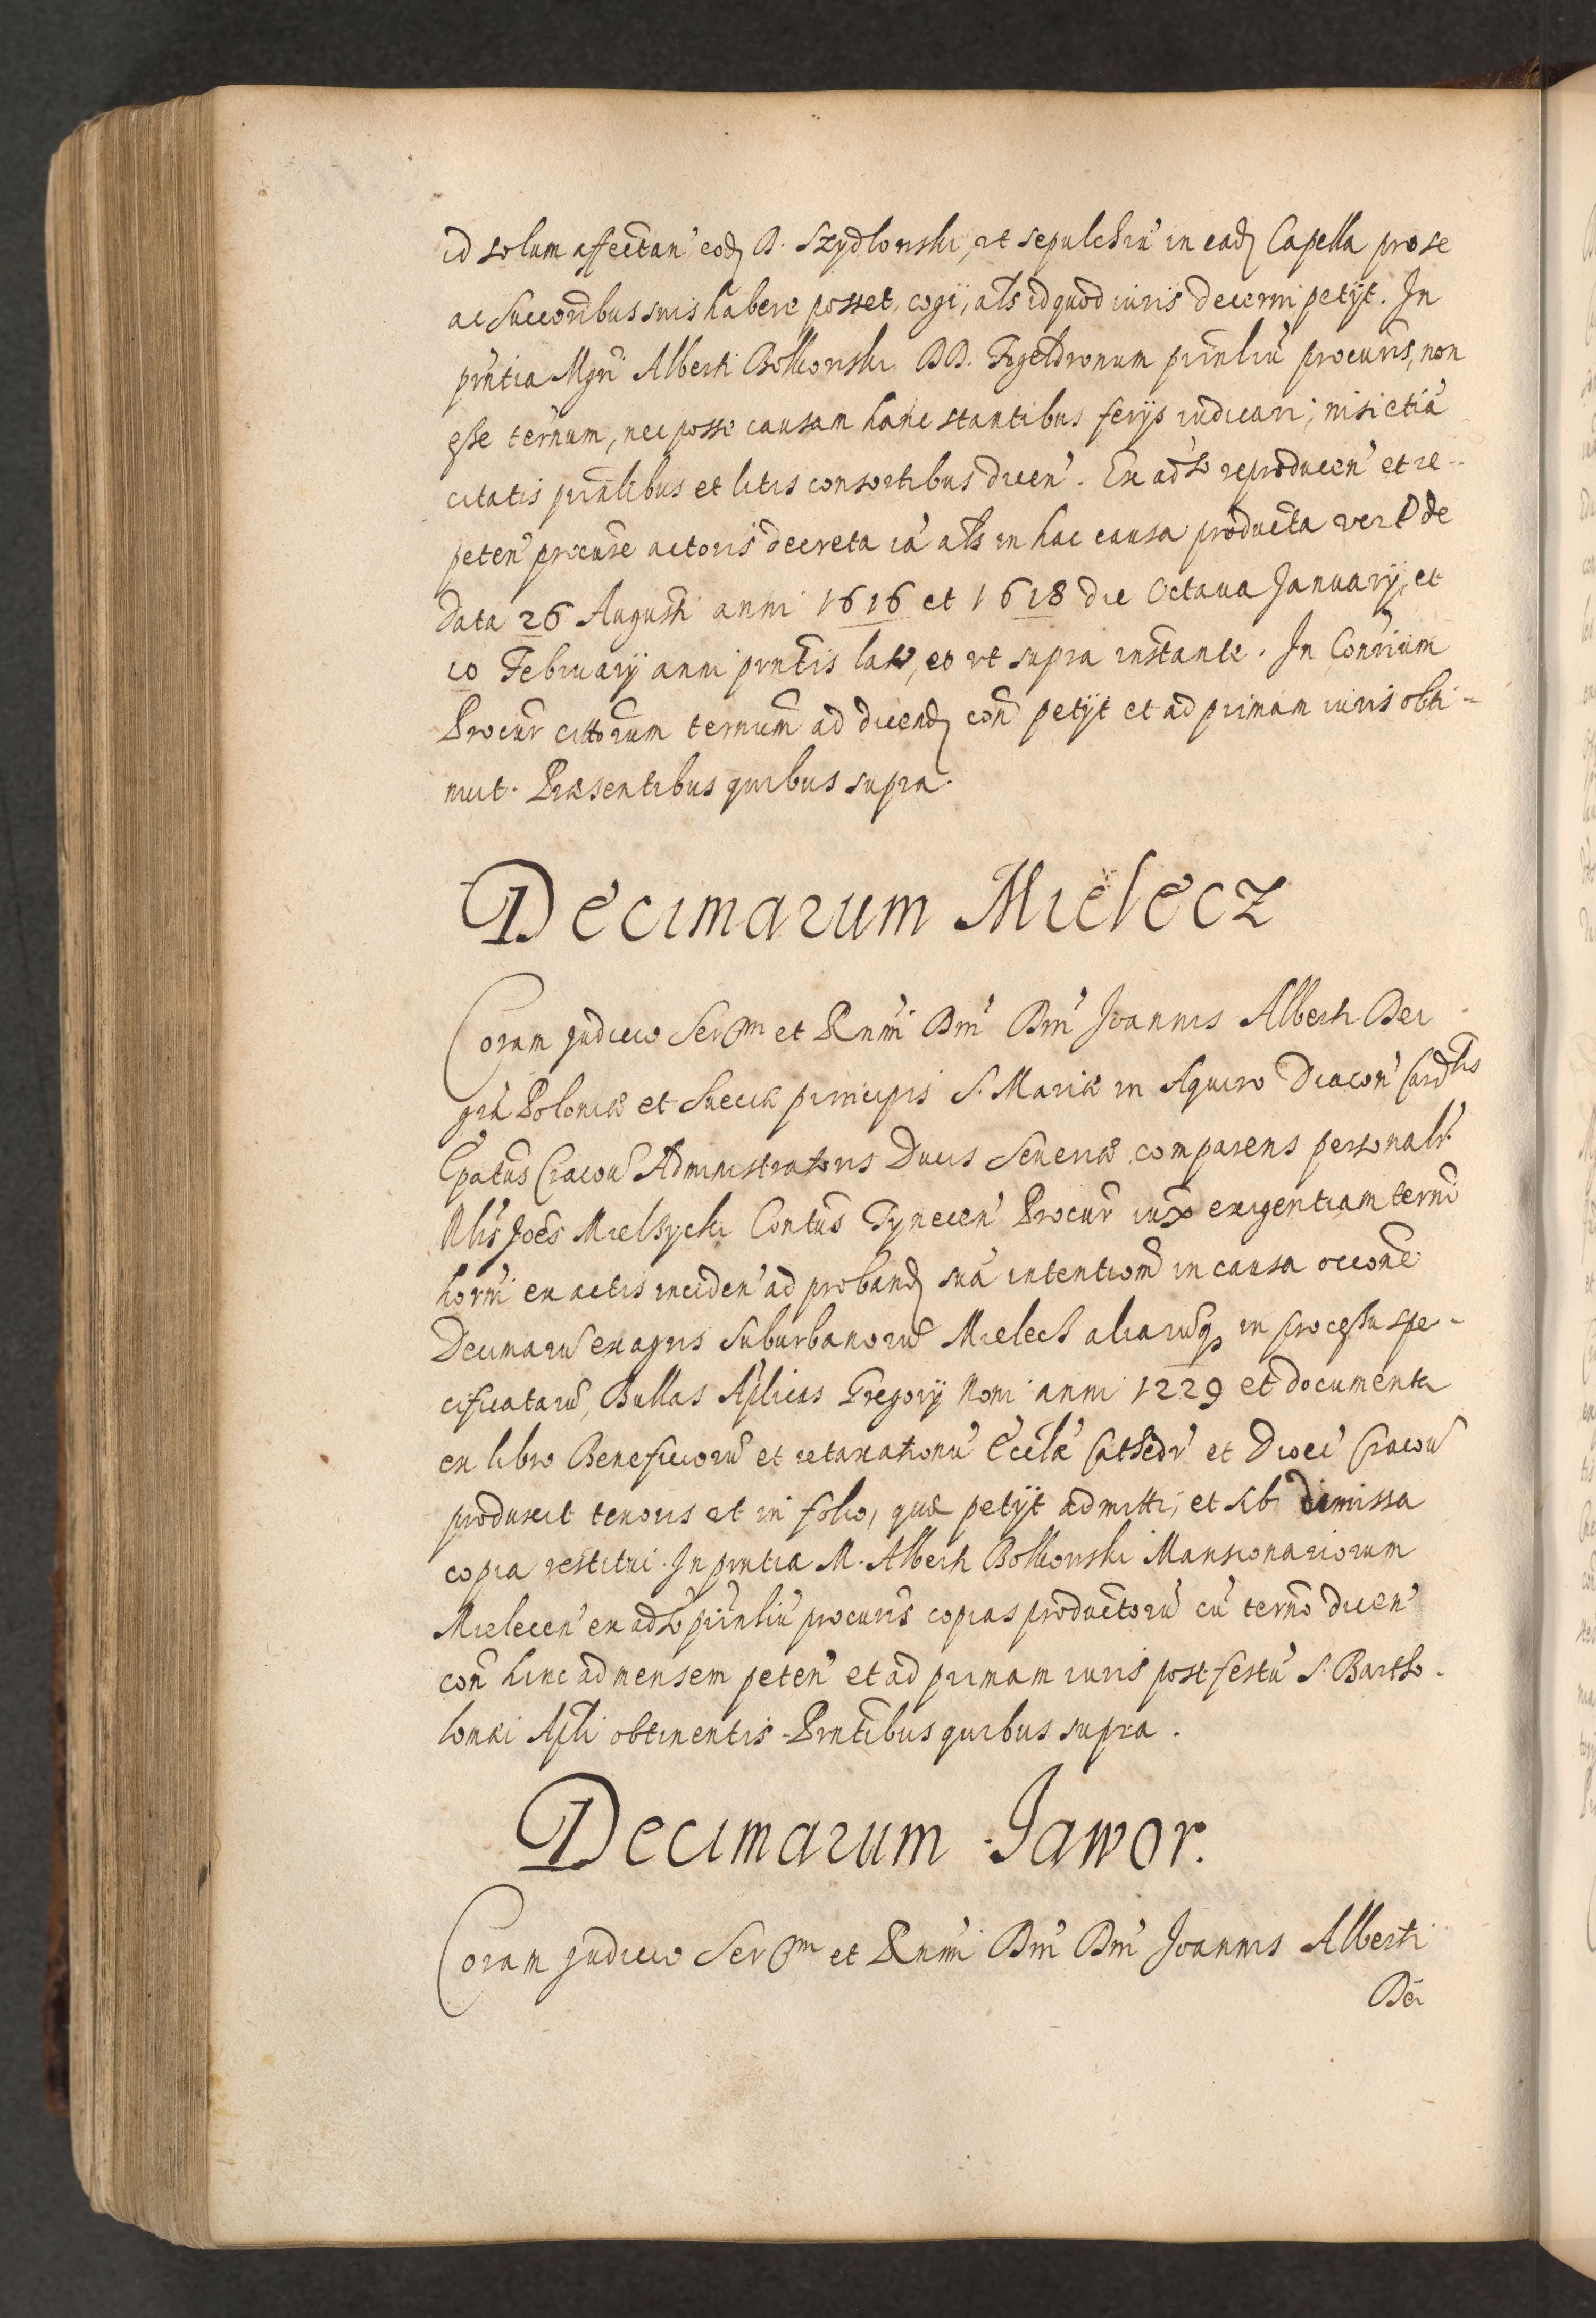 id solum affectan' eod. D. Szydlowski, ut sepulchru' in ead. Capella pro se
ac succoribus suis habere posset, cogi, als id quod iuris decerni petijt. In
pn'tia Mgri Alberti Bolkowski DD. Fogeldronum prin'liu' procuris, non
esse ter'num, nec posse causam hanc stantibus ferijs iudicari; nisi etia'
citatis prin'libus et litis consortibus dicen'. Ex adso reproducen' et re-
peten' procure actoris decreta ia' als in hac causa producta de
data 26 Augusti anni 1616 et 1618 die Octava January, et
10 February anni pn'tis lato, et ut supra instante. In Con'rium
Procur cittorum ternum ad dicend. con' petijt et ad primam iuris obti-
nuit. Præsentibus quibus supra.
Decimarum Mielecz
Coram Judicio Sermi et Rn'mi Dn'i Dn'i Joannis Alberti Dei
gra' Poloniæ et Sueciæ principis S. Mariæ in Aquiro Diacon' Cardlis
Ep'atus Cracou' Administratoris Ducis Seueriæ comparens personalr'
Nlis Joes Mielzycki Con'tus Tynecen' Procur iux' exigentiam terni
horni' ex actis inciden' ad proband. sua' intentione' in causa occone
Decimaru' ex agris suburbanoru' Mielecz aliaru'q. in processu spe-
cificataru', Bullas Ap'licas Gregory Noni anni 1229 et documenta
ex libro Beneficioru' et retaxationu' Ec'clæ' Cathedr' et Dioec' Cracou'
produxit tenoris ut in folio, quæ petijt admitti, et sibi dimissa
copia restitui. In pn'tia M. Alberti Bolkowski Mansionariorum
Mielecen' ex adso prin'liu' procuris copias productoru' cu' terno dicen'
con' hinc ad mensem peten' et ad primam iuris post festu' S. Bartho-
lomæi Ap'li obtinentis. Pn'tibus quibus supra.
Decimarum Jawor.
Coram Judicio Sermi et Rn'mi Dn'i Dn'i Joannis Alberti
Dei